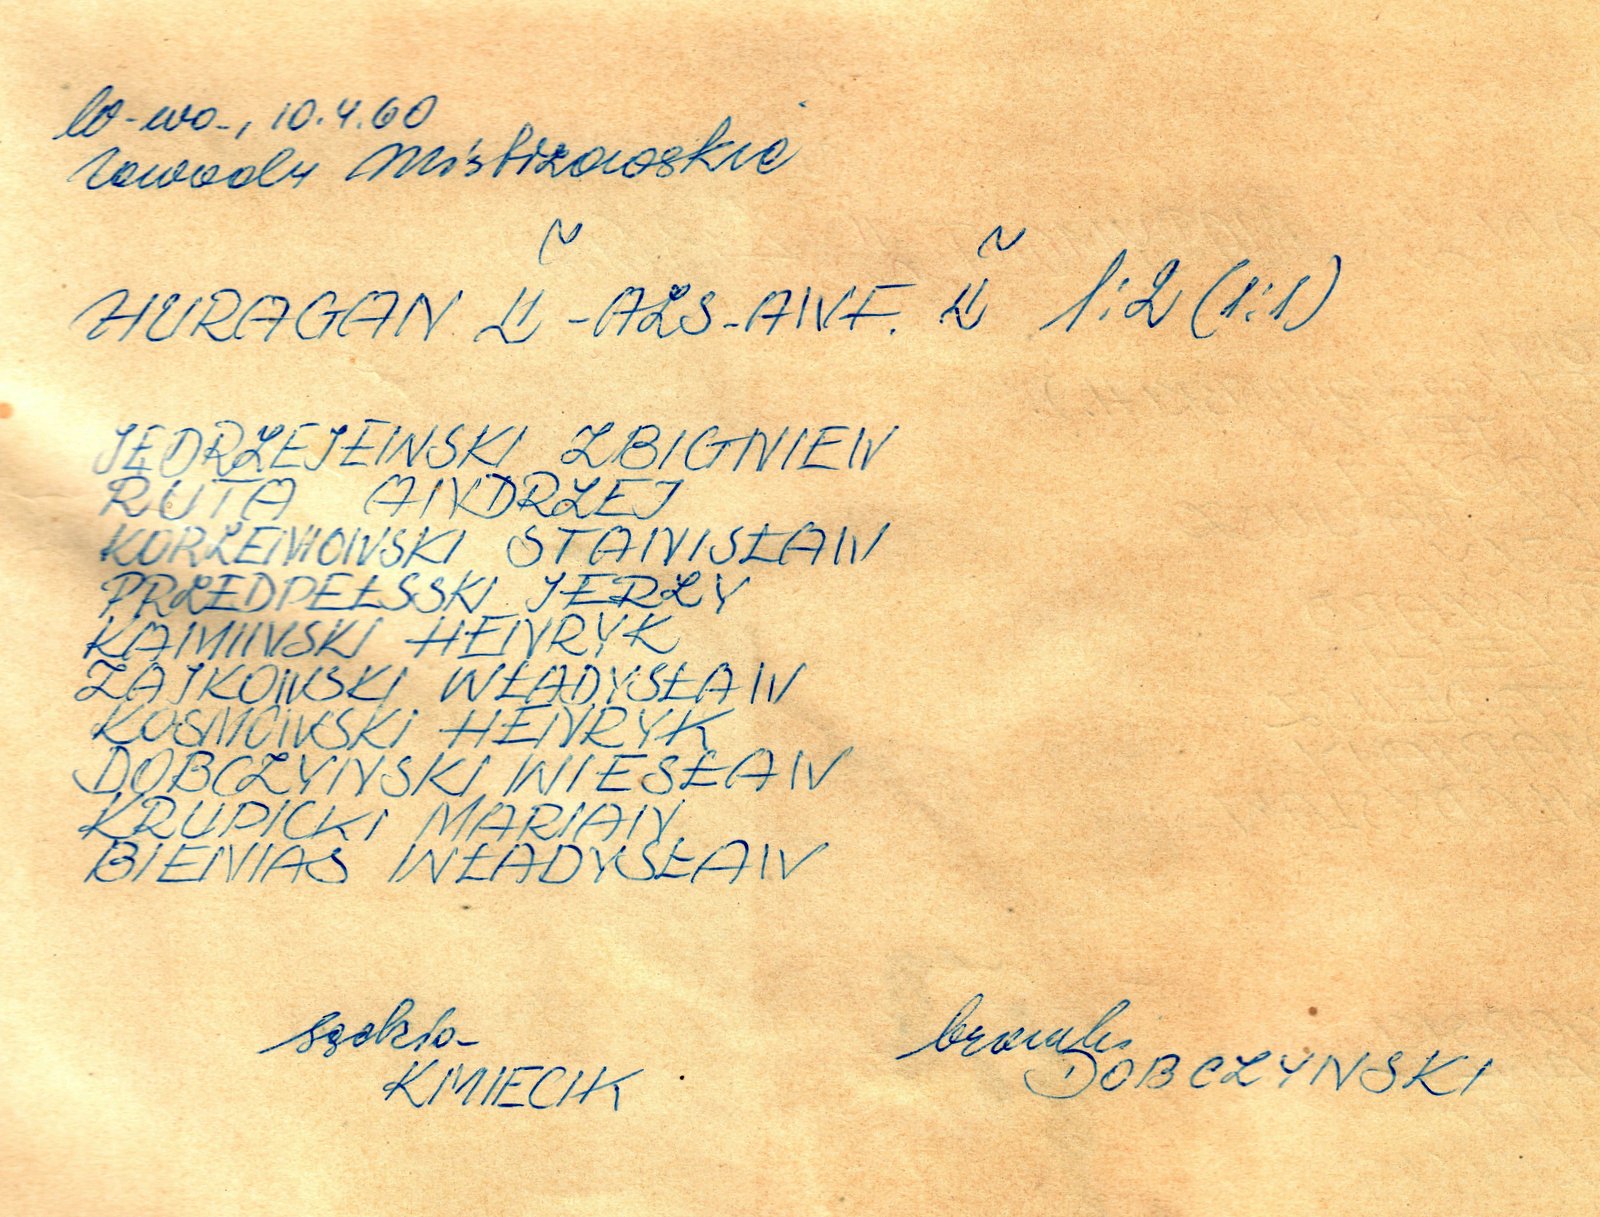 W-wa-, 10.4.60
Zawody Mistrzowskie
HURAGAN II - AZS-AWF. II 1:2 (1:1)
JEDRZEJEWSKI ZBIGNIEW
RUTA ANDRZEJ
KORZENIOWSKI STANISŁAW
PRZEDPEŁSSKI JERZY
KAMINSKI HENRYK
ZAJKOWSKI WŁADYSŁAW
KOSMOWSKI HENRYK
DOBCZYNSKI WIESŁAW
KRUPICKI MARIAN
BIENIAS WŁADYSŁAW
sędzia-
KMIECIK
bramka
DOBCZYNSKI